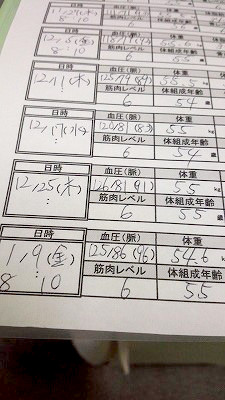 8:10
日時 血圧(脈) 体重
12/5(金)
8:10
筋肉レベル 体組成年齢
6 54 歳
日時 血圧(脈) 体重
12/11(木) 55 kg
: 筋肉レベル 体組成年齢
6 54 歳
日時 血圧(脈) 体重
12/17(水) 120/81(83) 55 kg
: 筋肉レベル 体組成年齢
6 54 歳
日時 血圧(脈) 体重
12/25(木) 126/81(91) 55 kg
: 筋肉レベル 体組成年齢
6 55 歳
日時 血圧(脈) 体重
1/9(金) 125/86(96) 54.6
8:10 筋肉レベル 体組成年齢
6 55